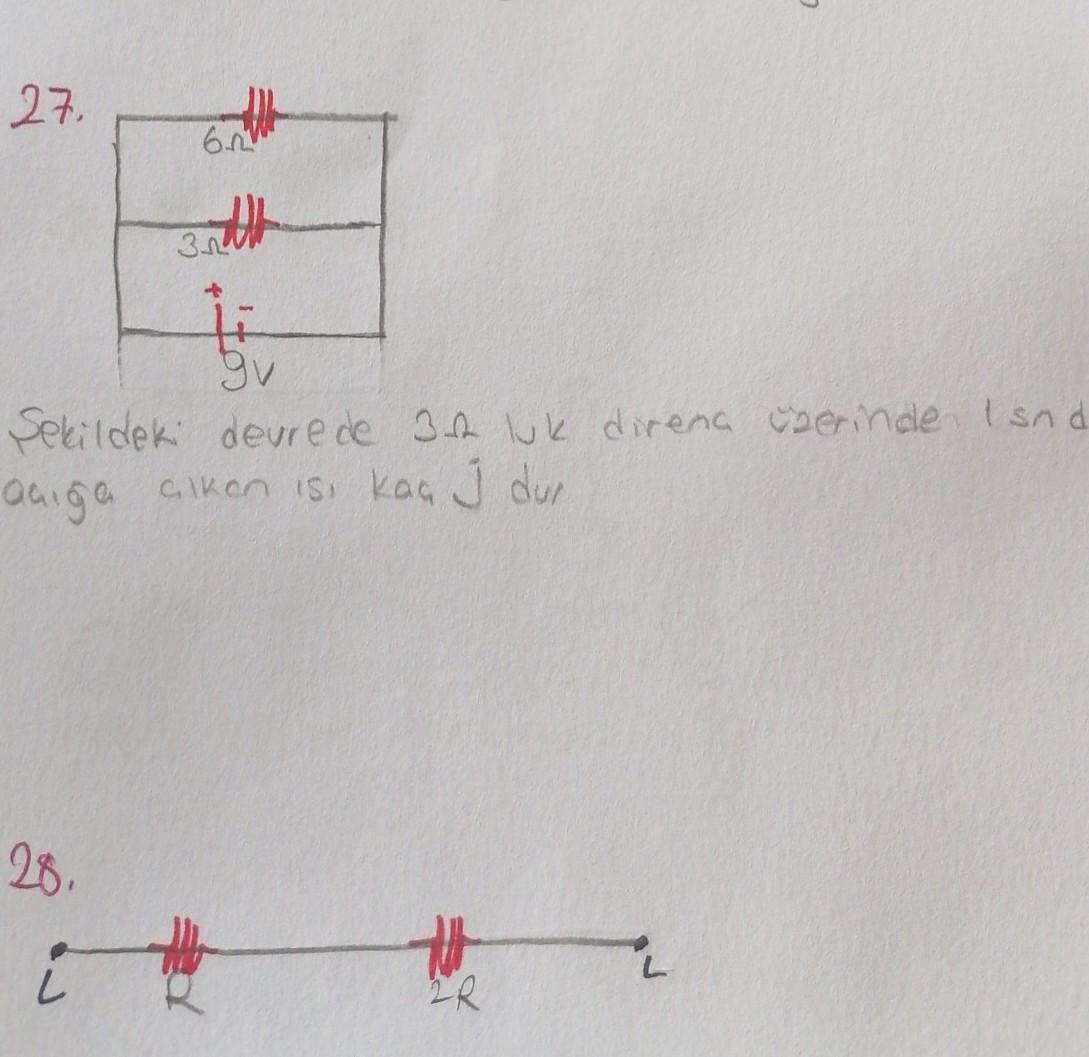 27.
6Ω
3Ω
+ -
9V
Şekildeki devrede 3Ω luk direnç üzerinde 1 snd
açığa çıkan ısı kaç j dur
28.
L R 2R L